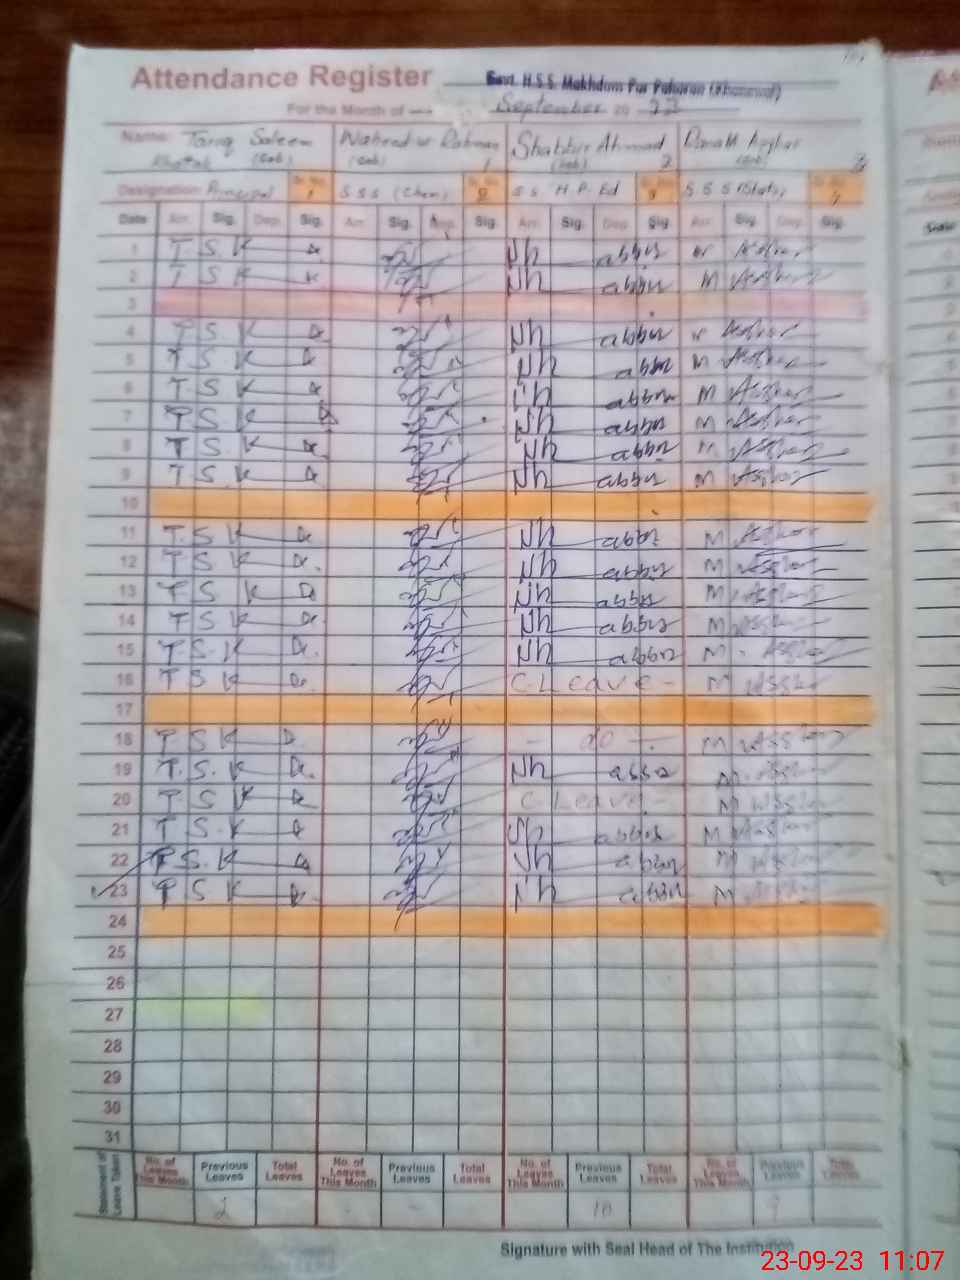 Attendance Register Govt. H.S.S. Makhdum Pur Pahoran (Khanewal)
For the Month of September 20 23
Name: Tariq Saleem Waheed ur Rahman Shabbir Ahmad Rana M. Asghar
Khattak (Sab) (Sab) 1 (Sab) 2 (Sab) 3
Designation: Principal Sr. No. 1 S.S.S (Chem) Sr. No. 2 S.S H.P.Ed Sr. No. 3 S.S.S (Stat) Sr. No.
Date Arr. Sig. Dep. Sig. Arr. Sig. Dep. Sig. Arr. Sig. Dep. Sig. Arr. Sig. Dep. Sig.
1 T.S.K Nh abbn Asghar
2 T S K Nh abbn M Asghar
3
4 T S K Nh abbn Asghar
5 T S K Nh abbn M Asghar
6 T.S K Nh abbn M Asghar
7 T.S K Nh abbn M Asghar
8 T S K Nh abbn M Asghar
9 T S K Nh abbn M Asghar
10
11 T.S K Nh abbn M Asghar
12 T.S K Nh abbn M Asghar
13 T S K Nh abbn M Asghar
14 T S K Nh abbn M Asghar
15 T S. K Nh abbn M. Asghar
16 T S K C-Leave- M Asghar
17
18 T S K - do - M Asghar
19 T.S. K Nh abbn M. Asghar
20 T. S K C-Leave- M Asghar
21 T S.K Nh abbn M Asghar
22 T S.K Nh abbn M Asghar
23 T S K Nh abbn M Asghar
24
25
26
27
28
29
30
31
Statement of Leave Taken
No. of Leaves This Month Previous Leaves Total Leaves No. of Leaves This Month Previous Leaves Total Leaves No. of Leaves This Month Previous Leaves Total Leaves No. of Leaves This Month Previous Leaves Total Leaves
2 - - 10 9
Signature with Seal Head of The Institution
23-09-23 11:07